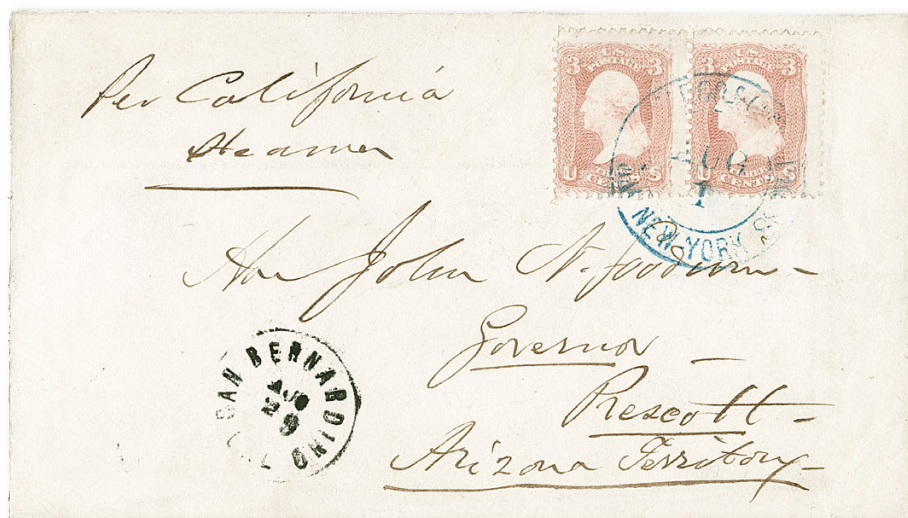 Per California
Steamer
3 U.S. POSTAGE 3
U CENTS S
3 U.S. POSTAGE 3
U CENTS S
AUG
1
NEW-YORK
Hon John N. Goodwin-
Governor -
Prescott-
Arizona Territory-
SAN BERNARDINO
AUG
29